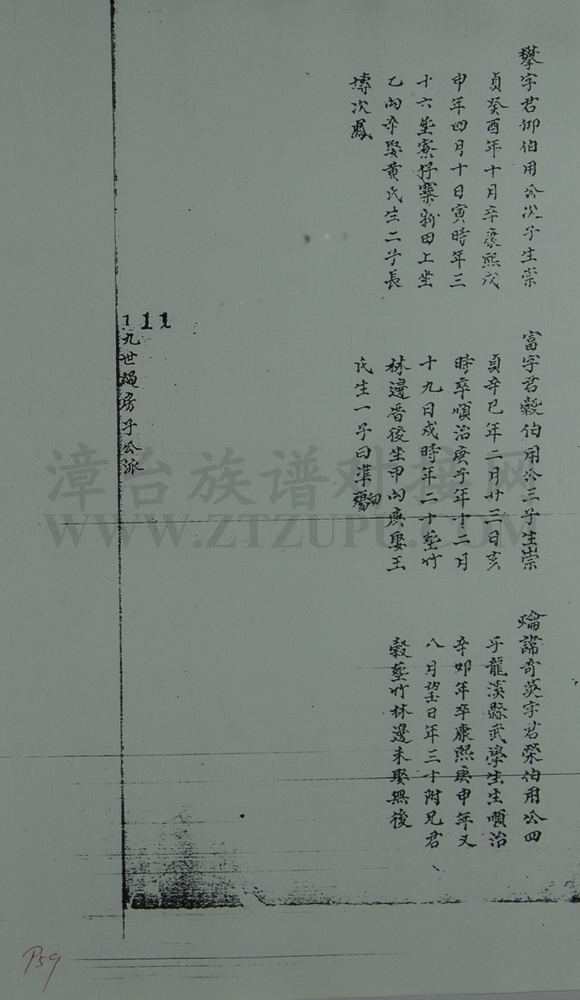 攀字君仰伯用公次子生崇
貞癸酉年十月卒康熙戊
申年四月十日寅時年三
十六塟寮仔寨新田上坐
乙向辛娶黄氏生二子長
摶次鳳
富字君穀伯用公三子生崇
貞辛巳年二月廿三日亥
時卒順治庚子年十二月
十九日戍時年二十塟竹
林邊晋後坐甲向庚娶王
氏生一子曰準
諱奇英字君榮伯用公四
子龍溪縣武學生生順治
辛卯年卒康熙庚申年又
八月望日年三十附兄君
穀塟竹林邊未娶無後
111
九世 房子公派
漳台族谱对接网
WWW.ZTZUPU.COM
P59